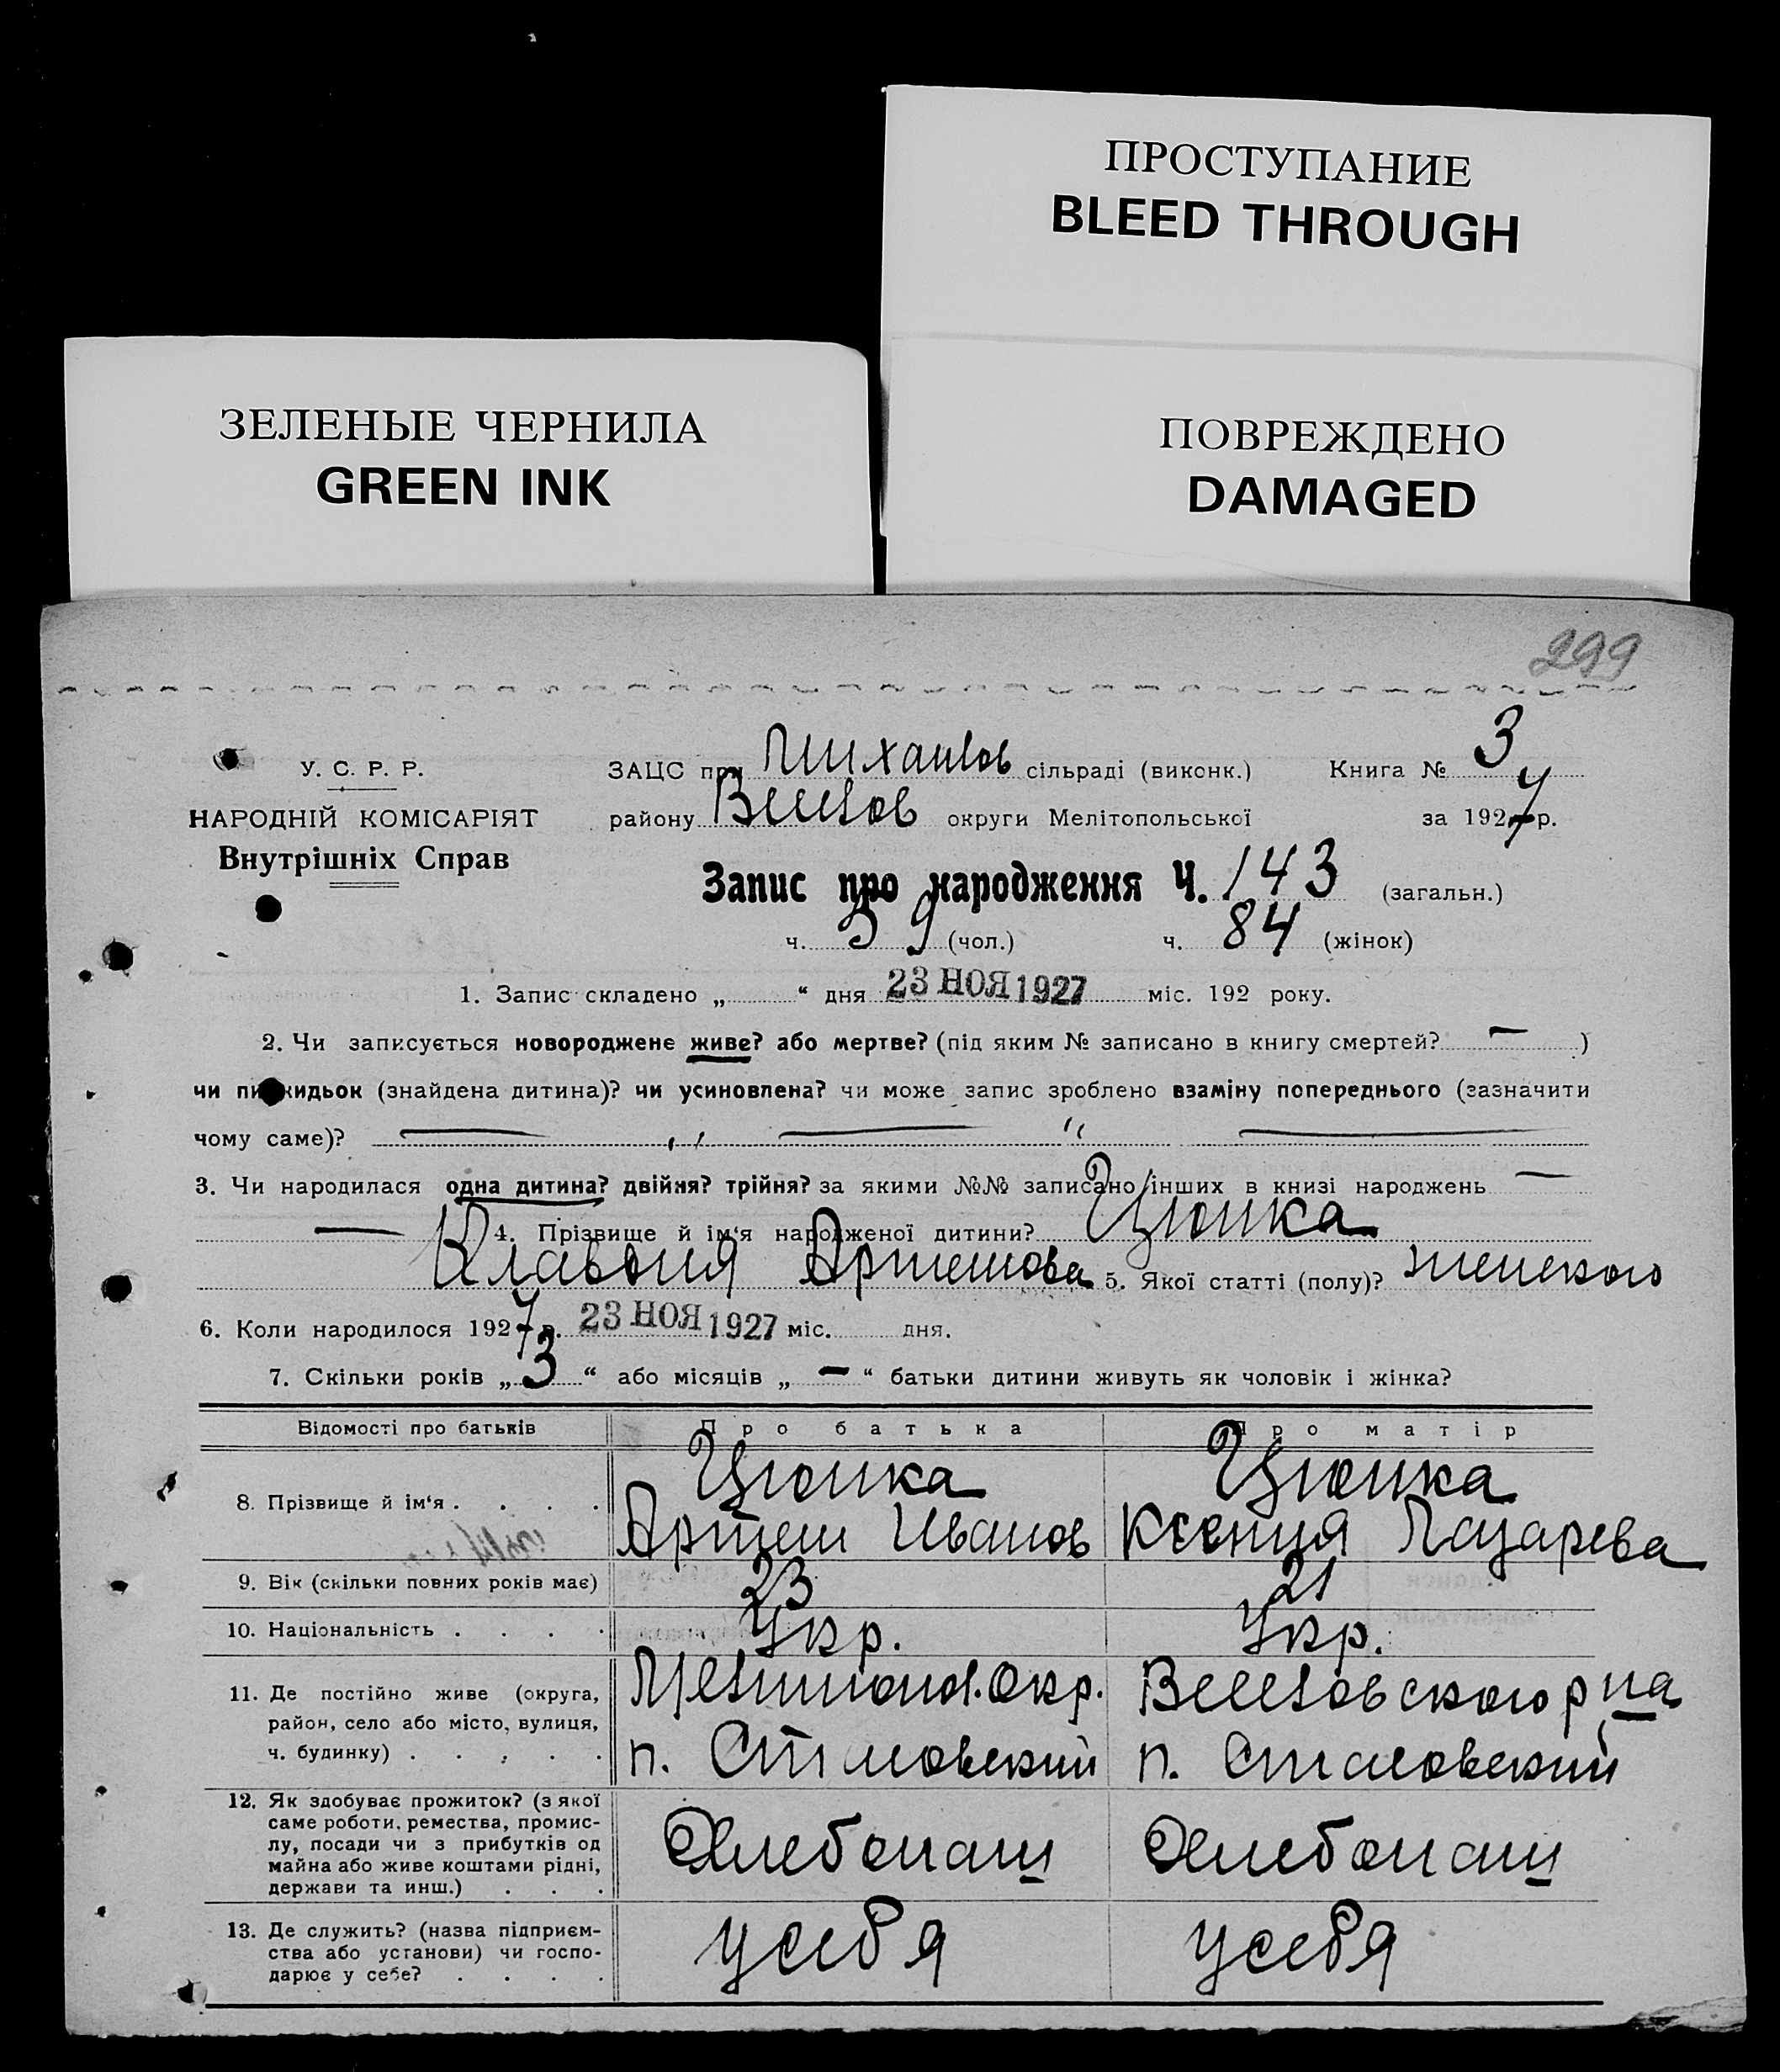 ПРОСТУПАНИЕ
BLEED THROUGH
ЗЕЛЕНЫЕ ЧЕРНИЛА
GREEN INK
ПОВРЕЖДЕНО
DAMAGED
299
У. С. Р. Р.
НАРОДНІЙ КОМІСАРІЯТ
Внутрішніх Справ
ЗАЦС при Михайлов сільраді (виконк.) Книга № 3
району Веселов округи Мелітопольської за 1927 р.
Запис про народження Ч. 143 (загальн.)
ч. 59 (чол.) ч. 84 (жінок)
1. Запис складено „ “ дня 23 НОЯ 1927 міс. 192 року.
2. Чи записується новороджене живе? або мертве? (під яким № записано в книгу смертей? — )
чи підкидьок (знайдена дитина)? чи усиновлена? чи може запис зроблено взаміну попереднього (зазначити
чому саме)? — „ — “ —
3. Чи народилася одна дитина? двійня? трійня? за якими №№ записано інших в книзі народжень —
— 4. Прізвище й ім‘я народженої дитини? Цюпка
Клавдия Артемова 5. Якої статті (полу)? женского
6. Коли народилося 1927 р. 23 НОЯ 1927 міс. дня.
7. Скільки років „ 3 “ або місяців „ — “ батьки дитини живуть як чоловік і жінка?
Відомості про батьків Про батька Про матір
8. Прізвище й ім‘я . . . . Цюпка Цюпка
Артем Иванов Ксения Лазарева
9. Вік (скільки повних років має) 23 21
10. Національність . . . . Укр. Укр.
11. Де постійно живе (округа, Мелитопол. Окр. Веселовского р на
район, село або місто, вулиця,
ч. будинку) . . . . . п. п.
12. Як здобуває прожиток? (з якої
саме роботи, ремества, промис-
лу, посади чи з прибутків од Хлебопаш Хлебопаш
майна або живе коштами рідні,
держави та инш.) . . .
13. Де служить? (назва підприєм-
ства або установи) чи госпо- у себя у себя
дарює у себе? . . . .